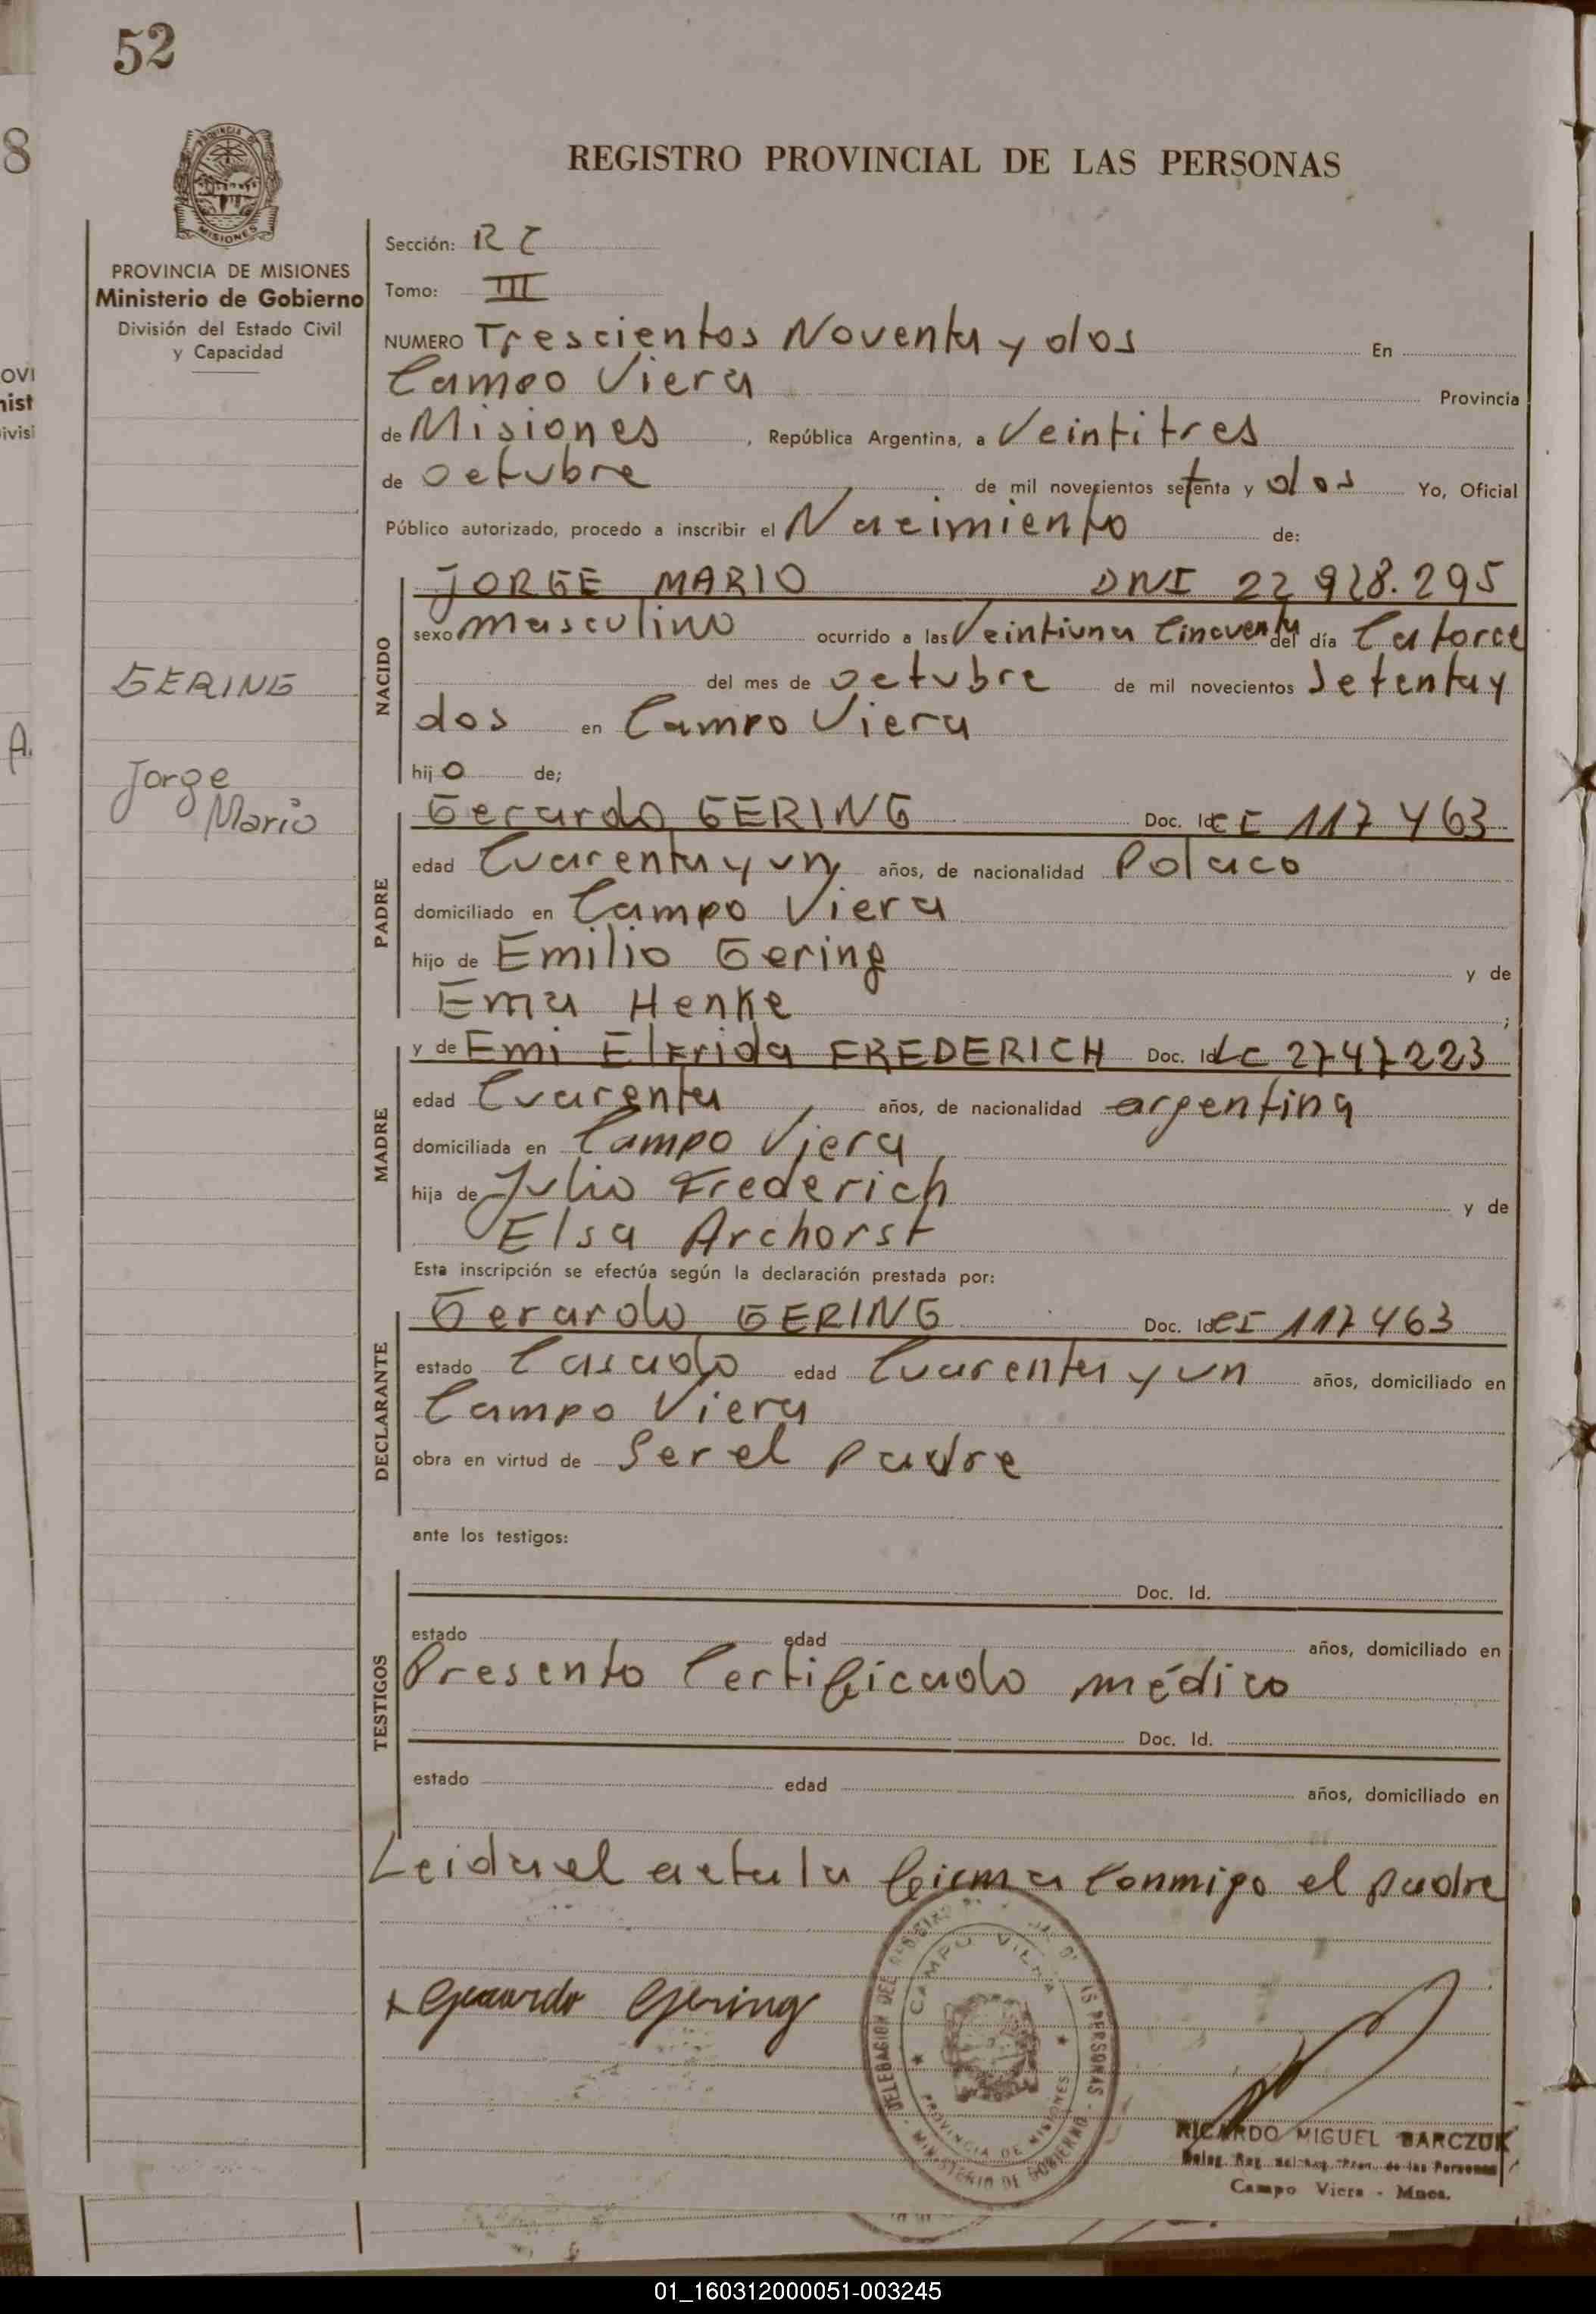 52
8
REGISTRO PROVINCIAL DE LAS PERSONAS
PROVINCIA DE MISIONES
Ministerio de Gobierno
División del Estado Civil
y Capacidad
GERING
Jorge
Mario
Sección:
Tomo: III
NUMERO Trescientos Noventa y dos En
Campo Viera Provincia
de Misiones, República Argentina, a Veintitres
de octubre de mil novecientos setenta y dos Yo, Oficial
Público autorizado, procedo a inscribir el Nacimiento de:
NACIDO
JORGE MARIO DNI 22 928.295
sexo masculino ocurrido a las Veintiuna Cincuenta del día Catorce
del mes de octubre de mil novecientos Setenta y
dos en Campo Viera
hijo de;
PADRE
Gerardo GERING Doc. Id. CI 117463
edad Cuarenta y un años, de nacionalidad Polaco
domiciliado en Campo Viera
hijo de Emilio Gering y de
Ema Henke ;
MADRE
y de Emi Elfrida FREDERICH Doc. Id. LC 2747223
edad Cuarenta años, de nacionalidad argentina
domiciliada en Campo Viera
hija de Julio Frederich y de
Elsa Archorst
Esta inscripción se efectúa según la declaración prestada por:
DECLARANTE
Gerardo GERING Doc. Id. CI 117463
estado Casado edad Cuarenta y un años, domiciliado en
Campo Viera
obra en virtud de Ser el padre
ante los testigos:
TESTIGOS
Doc. Id.
estado edad años, domiciliado en
Presento Certificado médico
Doc. Id.
estado edad años, domiciliado en
Leida el acta la firma Conmigo el padre
Gerardo Gering
CAMPO VIERA
PROVINCIA DE MISIONES
MINISTERIO DE GOBIERNO
RICARDO MIGUEL BARCZUK
Campo Viera - Mnes.
01_160312000051-003245